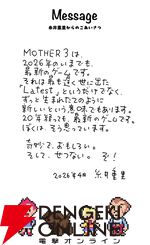 Message
糸井重里からのごあいさつ
MOTHER3は、
2026年のいまでも、
最新のゲームです。
それは最も遅く世に出た
「Latest」というだけでなく、
ずっと生まれたてのように
新しいという意味でもあります。
20年経っても、最新のゲームです。
ぼくは、そう思っています。
奇妙で、おもしろい。
そして、せつない。ぞ!
2026年4月 糸井重里
DENGEKI
ONLINE
電撃オンライン